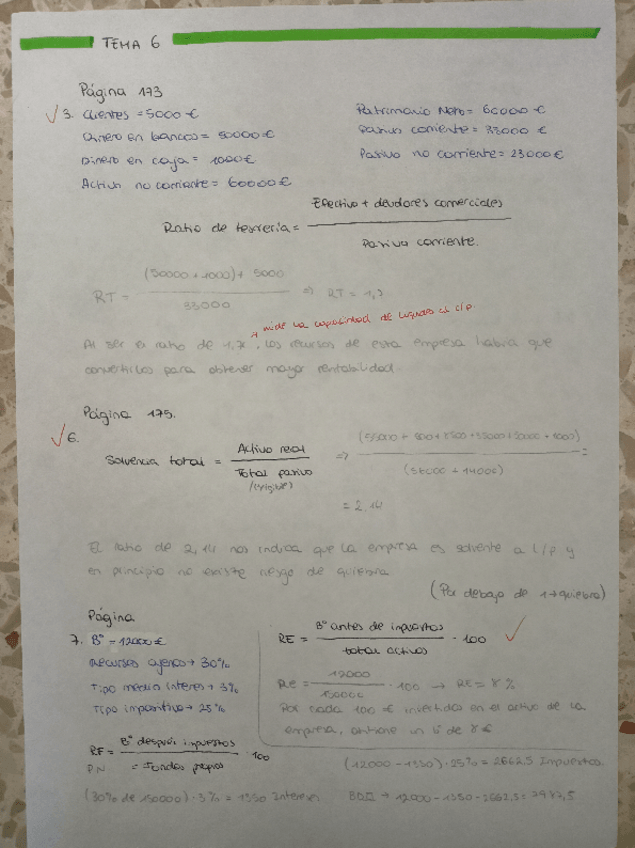 TEMA 6
Página 173
3. Clientes = 5000 €
Dinero en bancos = 50000 €
Dinero en caja = 1000 €
Activo no corriente = 60000 €
Patrimonio Neto = 60000 €
Pasivo corriente = 33000 €
Pasivo no corriente = 23000 €
Ratio de tesorería = Efectivo + deudores comerciales
Pasivo corriente.
RT = (50000 + 1000) + 5000
33000
⇒ RT = 1,7
mide la capacidad de liquidez al c/p.
Al ser el ratio de 1,7, los recursos de esta empresa habría que
convertirlos para obtener mayor rentabilidad.
Página 175.
6.
Solvencia total = Activo real
Total pasivo
(exigible)
⇒ (55000 + 600 + 8500 + 35000 + 20000 + 1000)
=
= 2,14
El ratio de 2,14 nos indica que la empresa es solvente a l/p y
en principio no existe riesgo de quiebra
(Por debajo de 1 → quiebra)
Página
7. Bº = 12000 €
Recursos ajenos → 30%
Tipo medio interés → 3%
Tipo impositivo → 25%
RF = Bº después impuestos · 100
PN = Fondos propios
(30% de 150000) · 3% = 1350 Interes
RE = Bº antes de impuestos · 100
total activos
RE = 12000 · 100 → RE = 8%
150000
Por cada 100 € invertidos en el activo de la
empresa, obtiene un Bº de 8 €
(12000 - 1350) · 25% = 2662,5 Impuestos.
BDII → 12000 - 1350 - 2662,5 = 7987,5